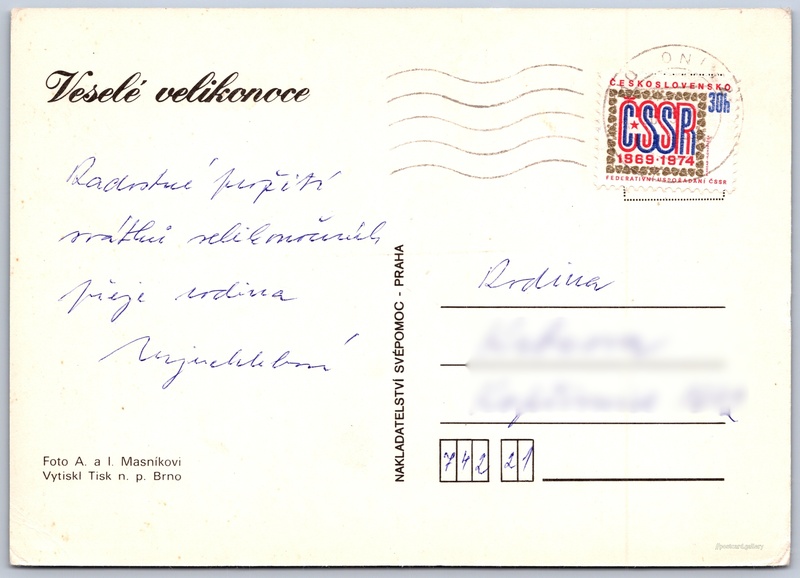 Veselé velikonoce
Radostné prožití
svátků velikonočních
přeje rodina
Foto A. a I. Masníkovi
Vytiskl Tisk n. p. Brno
NAKLADATELSTVÍ SVÉPOMOC - PRAHA
ČESKOSLOVENSKO
30h
ČSSR
1969·1974
FEDERATIVNÍ USPOŘÁDÁNÍ ČSSR
Rodina
742 21